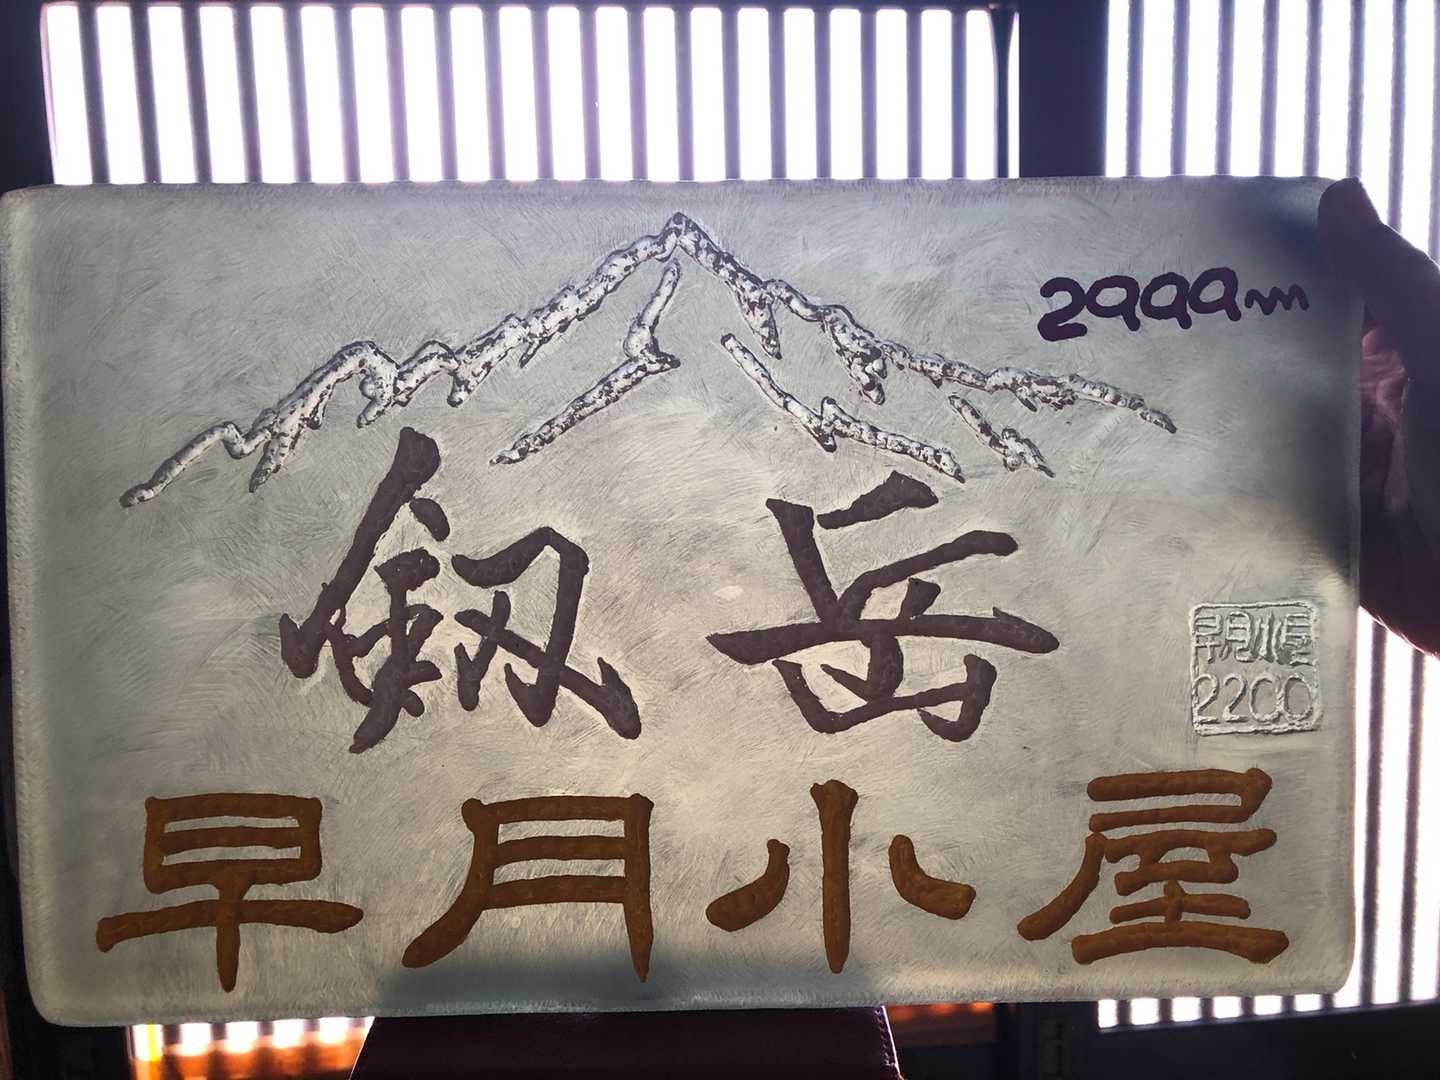 2999m
劔岳
早月小屋
早月小屋
2200